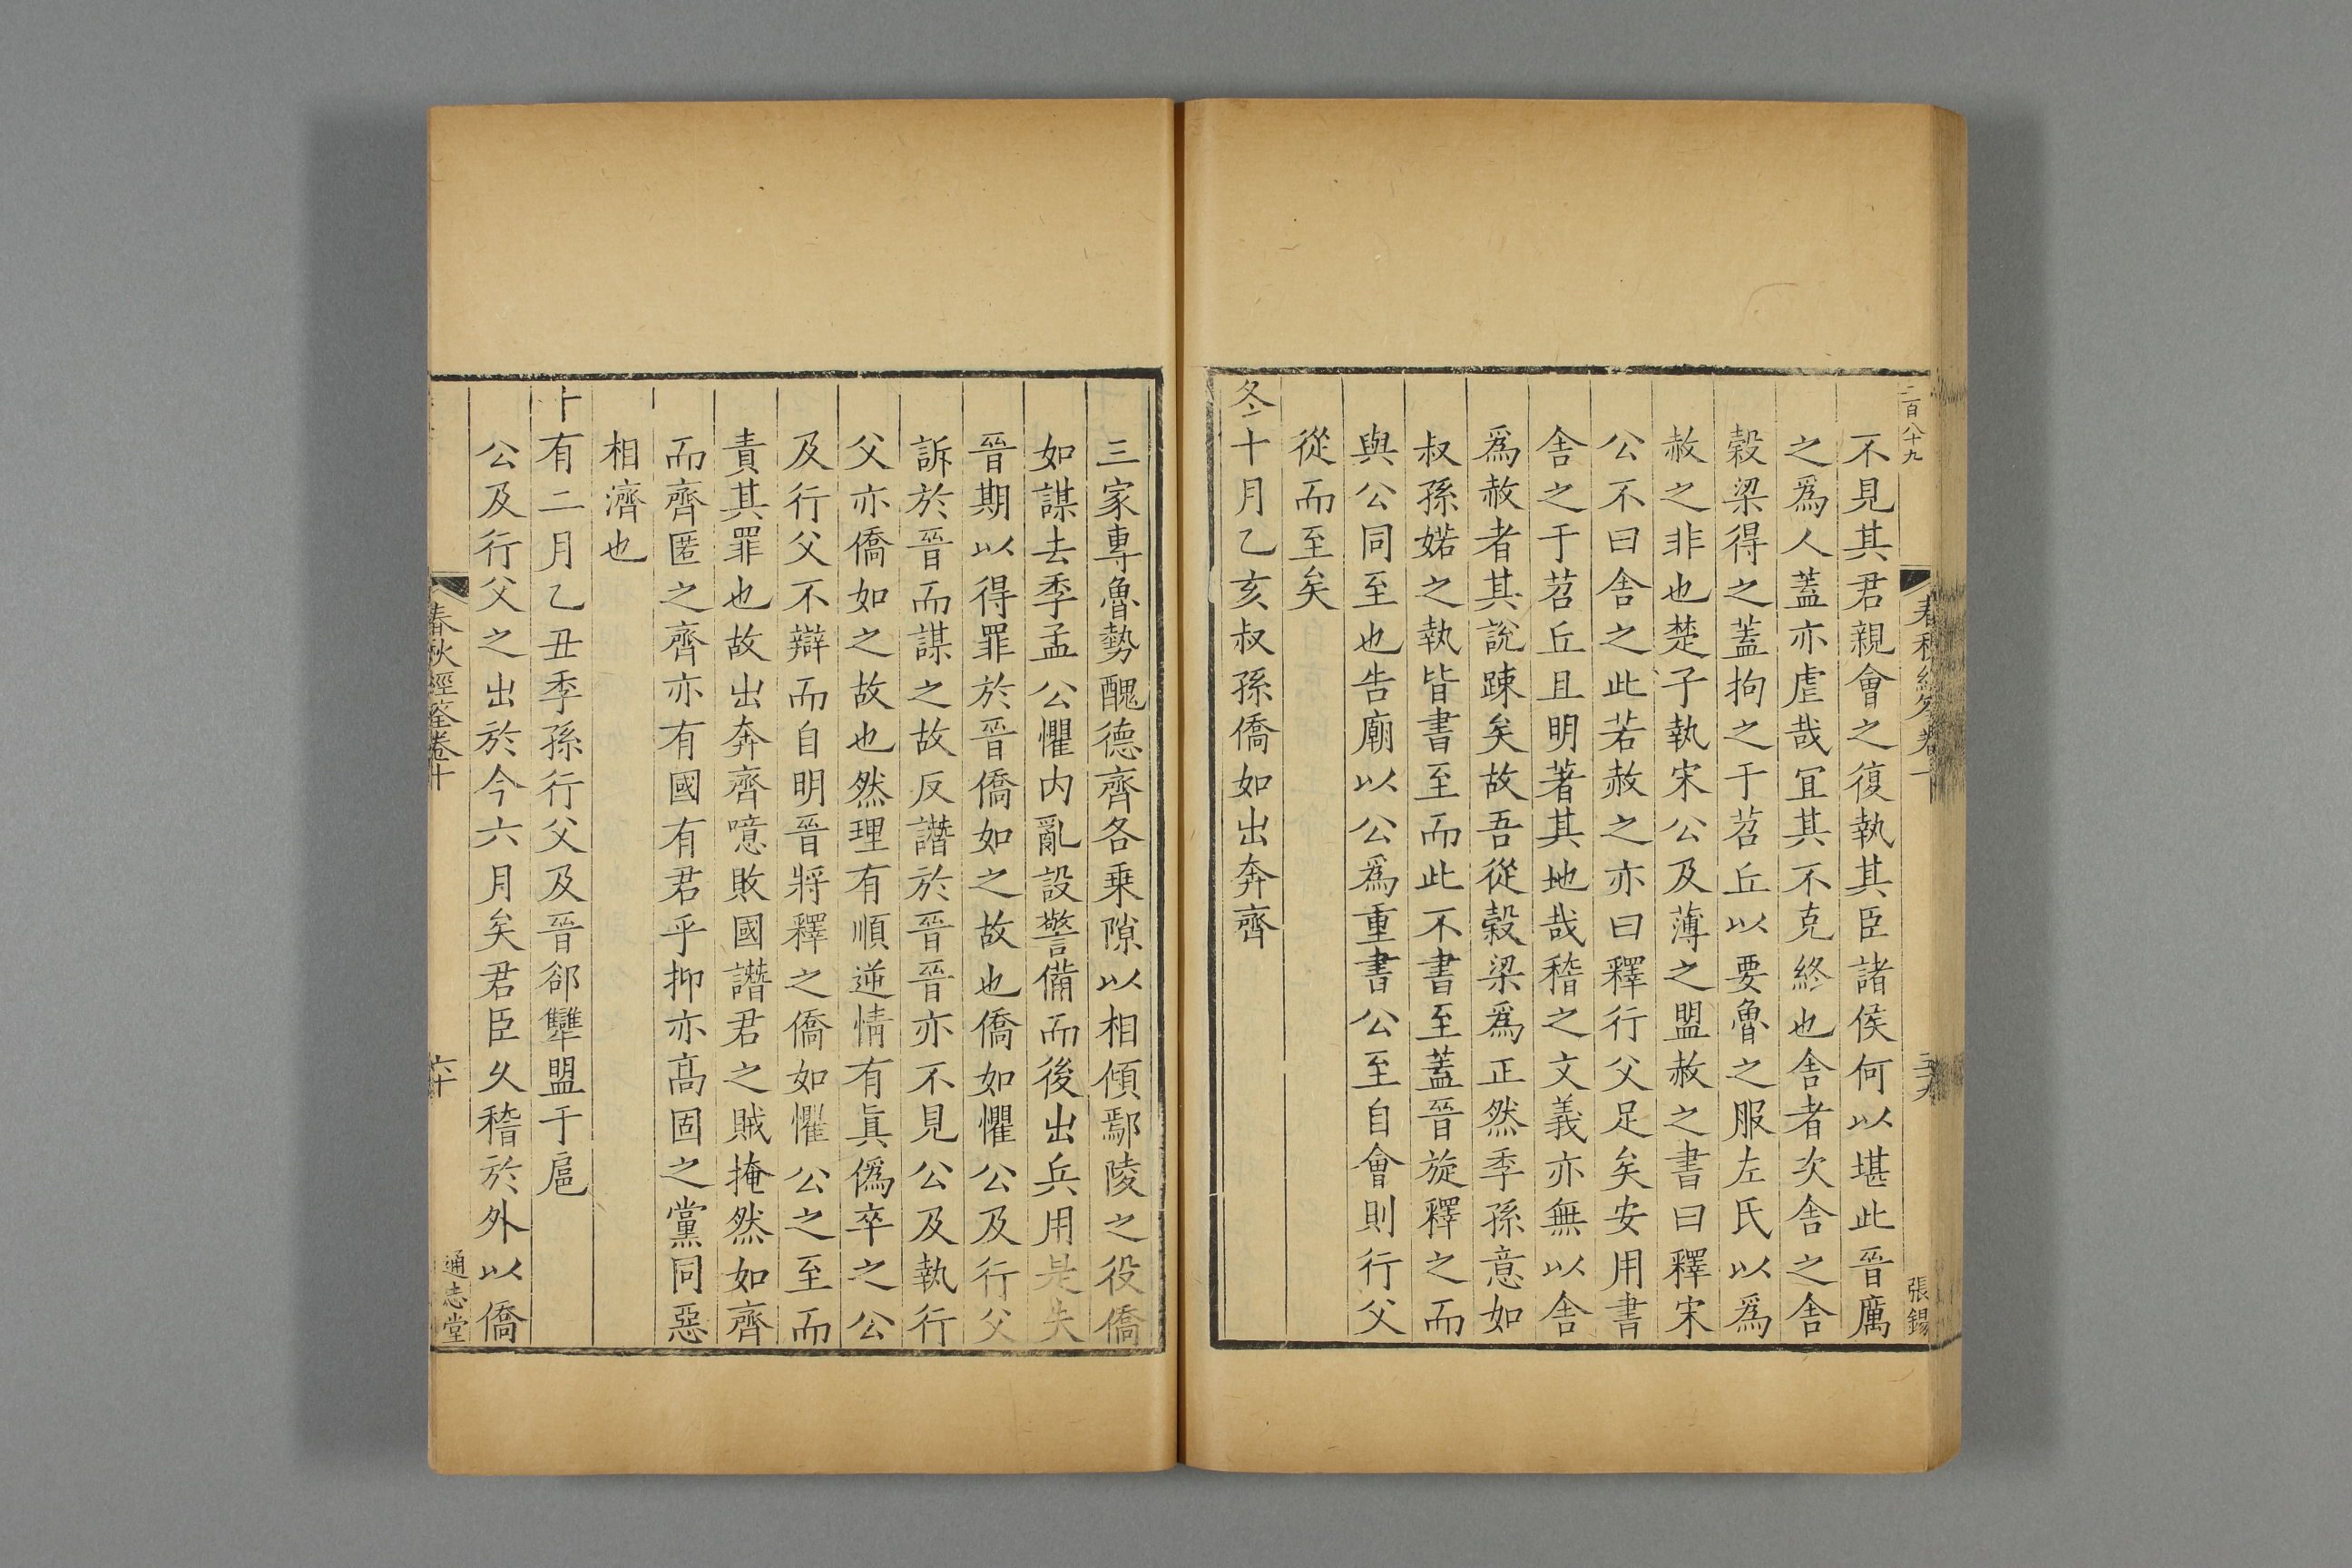 二百八十九
張錫
不見其君親會之復執其臣諸侯何以堪此晉厲
之爲人蓋亦虐哉宜其不克終也舎者次舎之舎
穀梁得之蓋拘之于苕丘以要魯之服左氏以爲
赦之非也楚子執宋公及薄之盟赦之書曰釋宋
公不曰舎之此若赦之亦曰釋行父足矣安用書
舎之于苕丘且明著其地哉稽之文義亦無以舎
爲赦者其說踈矣故吾從穀梁爲正然季孫意如
叔孫婼之執皆書至而此不書至蓋晉旋釋之而
與公同至也告廟以公爲重書公至自會則行父
從而至矣
冬十月乙亥叔孫僑如出奔齊
三家專魯勢醜德齊各乗隙以相傾鄢陵之役僑
如謀去季孟公懼内亂設警備而後出兵用是失
晉期以得罪於晉僑如之故也僑如懼公及行父
訴於晉而謀之故反譖於晉晉亦不見公及執行
父亦僑如之故也然理有順逆情有眞僞卒之公
及行父不辯而自明晉將釋之僑如懼公之至而
責其罪也故出奔齊噫敗國譖君之賊掩然如齊
而齊匿之齊亦有國有君乎抑亦高固之黨同惡
相濟也
十有二月乙丑季孫行父及晉郤犨盟于扈
公及行父之出於今六月矣君臣久稽於外以僑
春秋經筌卷十
六十
通志堂